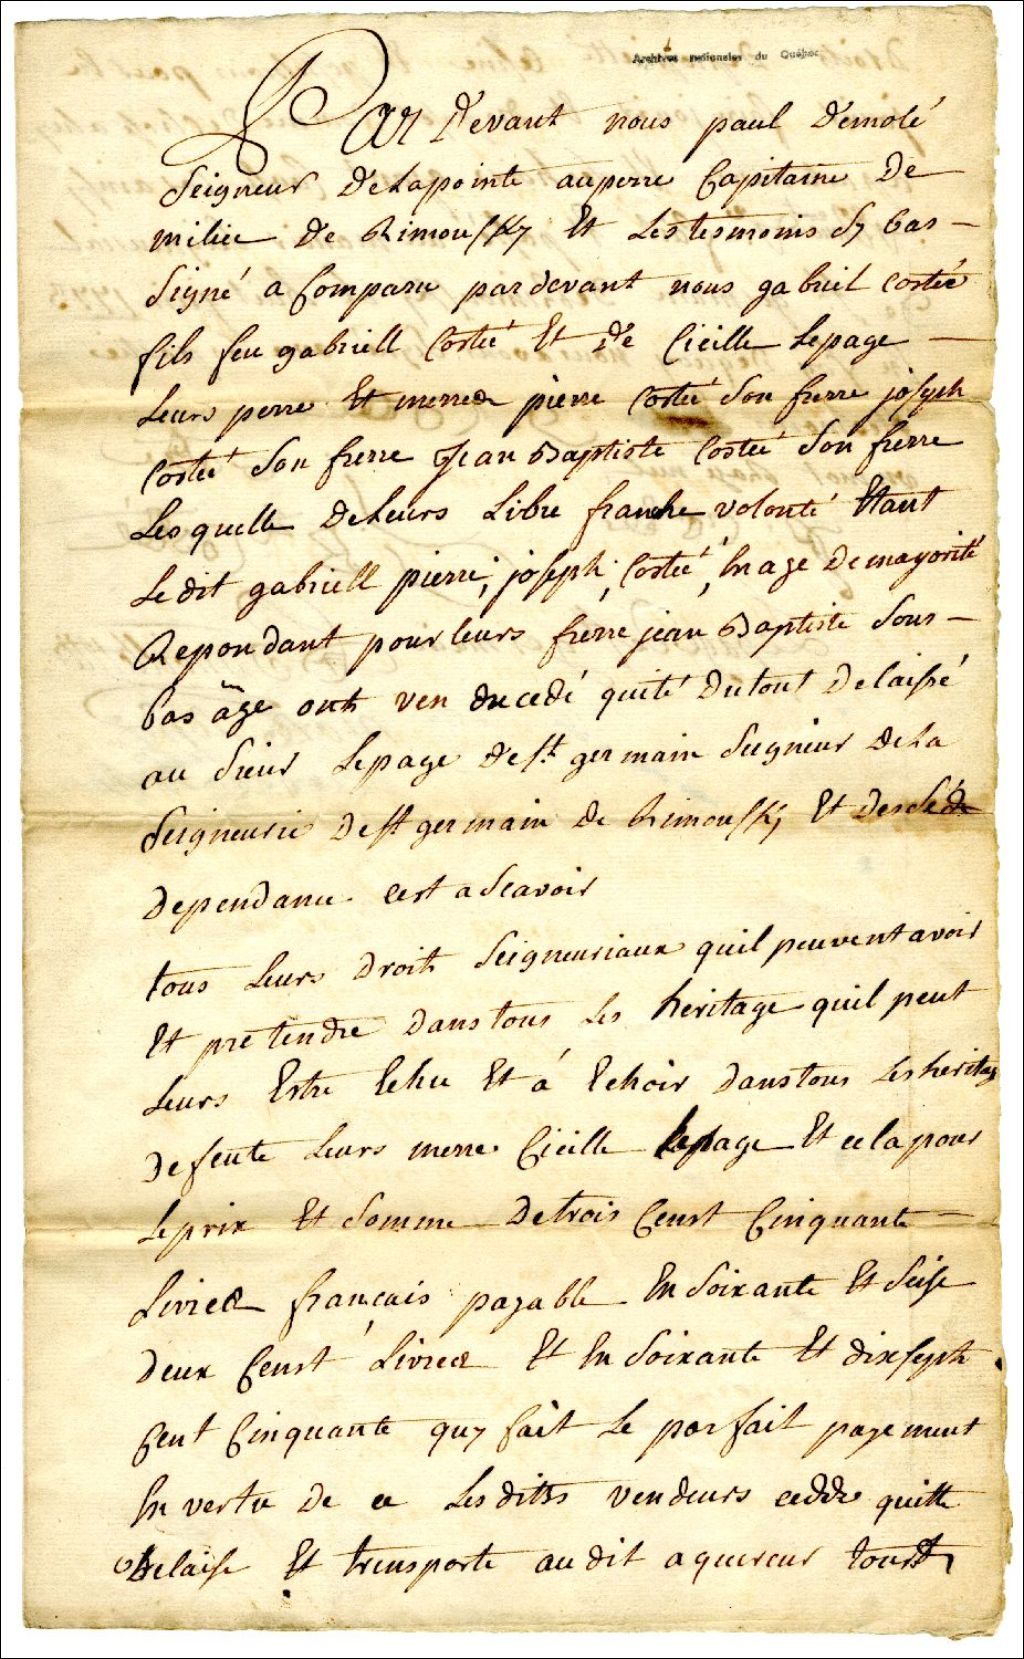 Archives nationales du Québec
Par Devant nous paul Demolé
Seigneur Delapointe auperre Capitaine De
milice De Rimousky Et Les tesmoins Sy bas
Signé a Comparu pardevant nous gabriel costée
fils feu gabriell Costé Et De Cicille Lepage
Leurs perre Et merres pierre Costé Son frerre joseph
Costé Son frerre Jean Baptiste Costé Son frerre
Lesquelle DeLeurs Libre franche volonté Etant
Le dit gabriell pierre, joseph, Costé, En age De mayorité
Repondant pour leurs frerre jean Baptiste Sous
bas âge onts ven du cedé quité Dutout Delaissé
au Sieur Lepage De st germain Seignieur DeLa
Seigneurie De st germain De Rimousky Et
Dependance cest a Scavoir
tous Leurs Droits Seigneuriaux quil peuvent avoir
Et pretendre Dans tous Les heritage quil peut
Leurs Estre Echu Et á Echoir Dans tous Les heritage
De feute Leurs merre Cicille Lepage Et cela pour
Le prix Et Somme De trois Censt Cinquante
Livres français payable En Soixante Et Seise
Deux Censt Livres Et En Soixante Et dix seph
Cent Cinquante quy fait Le parfait payement
En vertu De ce Les ditts vendeurs cedde quitte
Delaisse Et trensporte au dit aquereur